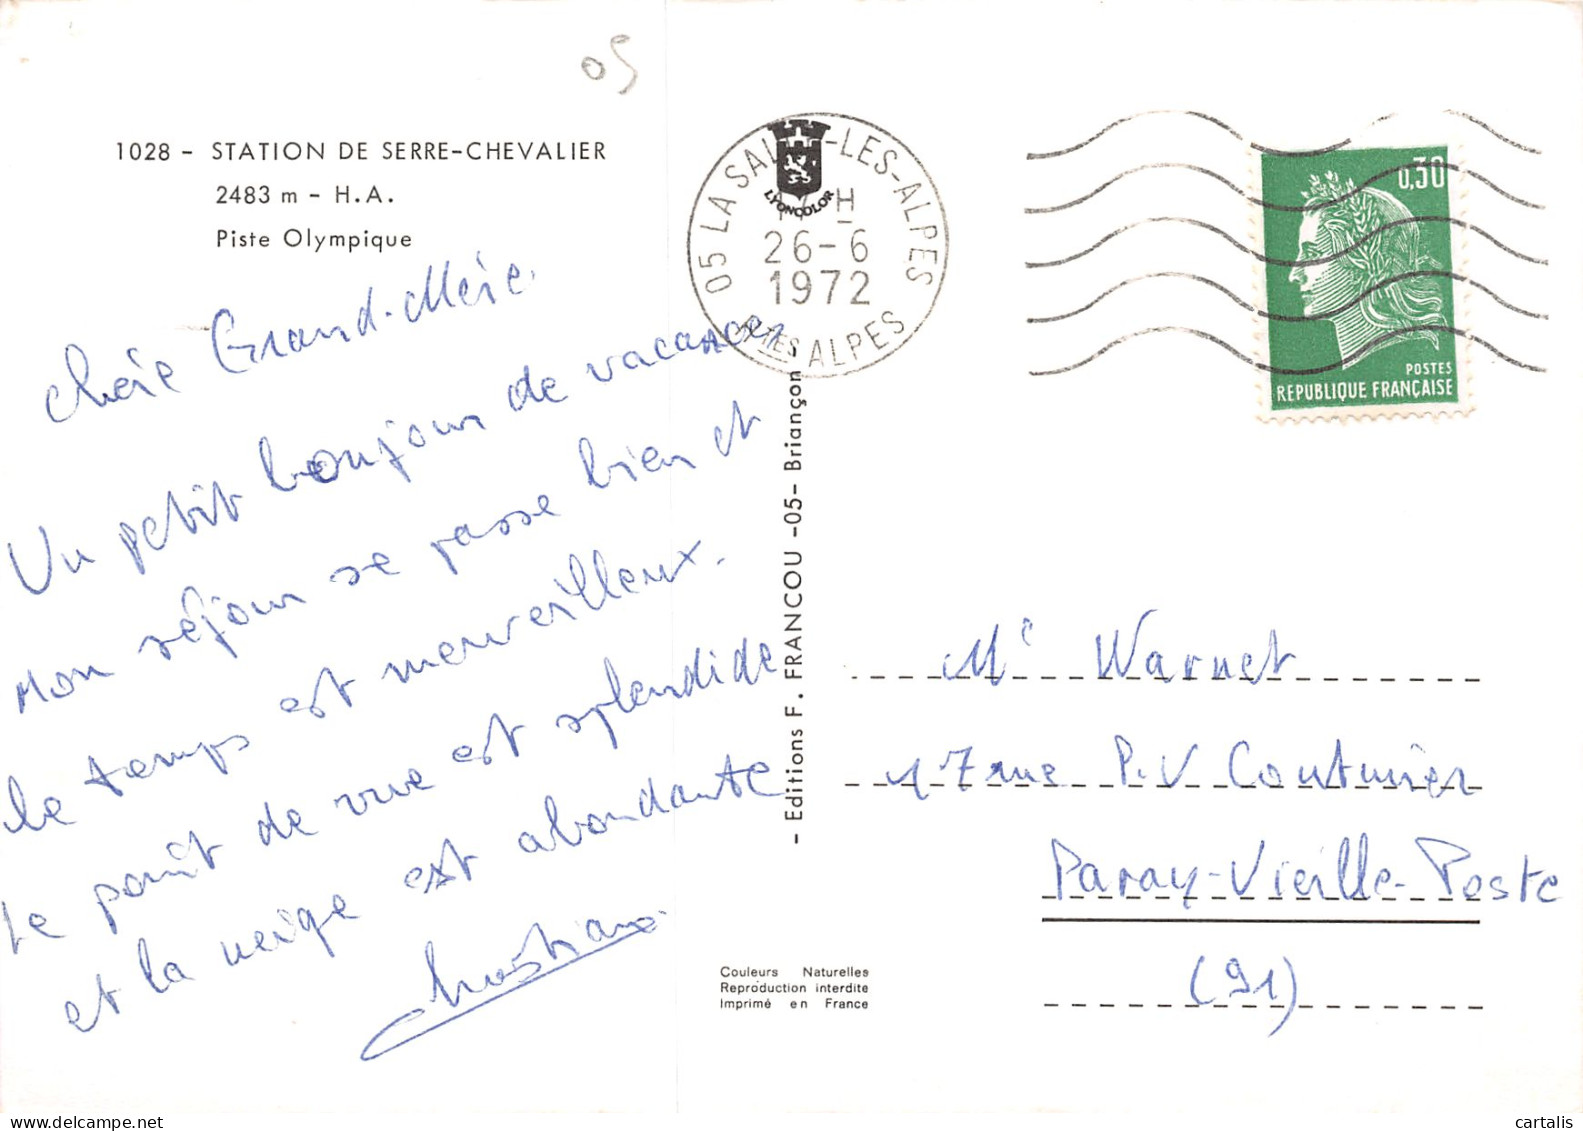 05
1028 - STATION DE SERRE-CHEVALIER
2483 m - H.A.
Piste Olympique
Chère Grand-Mère.
Un petit bonjour de vacances.
Mon séjour se passe bien et
le temps est merveilleux.
Le point de vue est splendide
et la neige est abondante
Christiane
05 LA SALLE-LES-ALPES
LYONCOLOR
H
26-6
1972
HTES ALPES
0,30
POSTES
REPUBLIQUE FRANÇAISE
- Editions F. FRANCOU -05- Briançon -
Me Warnet
17 rue P.V Couturier
Paray-Vieille-Poste
(91)
Couleurs Naturelles
Reproduction interdite
Imprimé en France
cartalis
www.delcampe.net